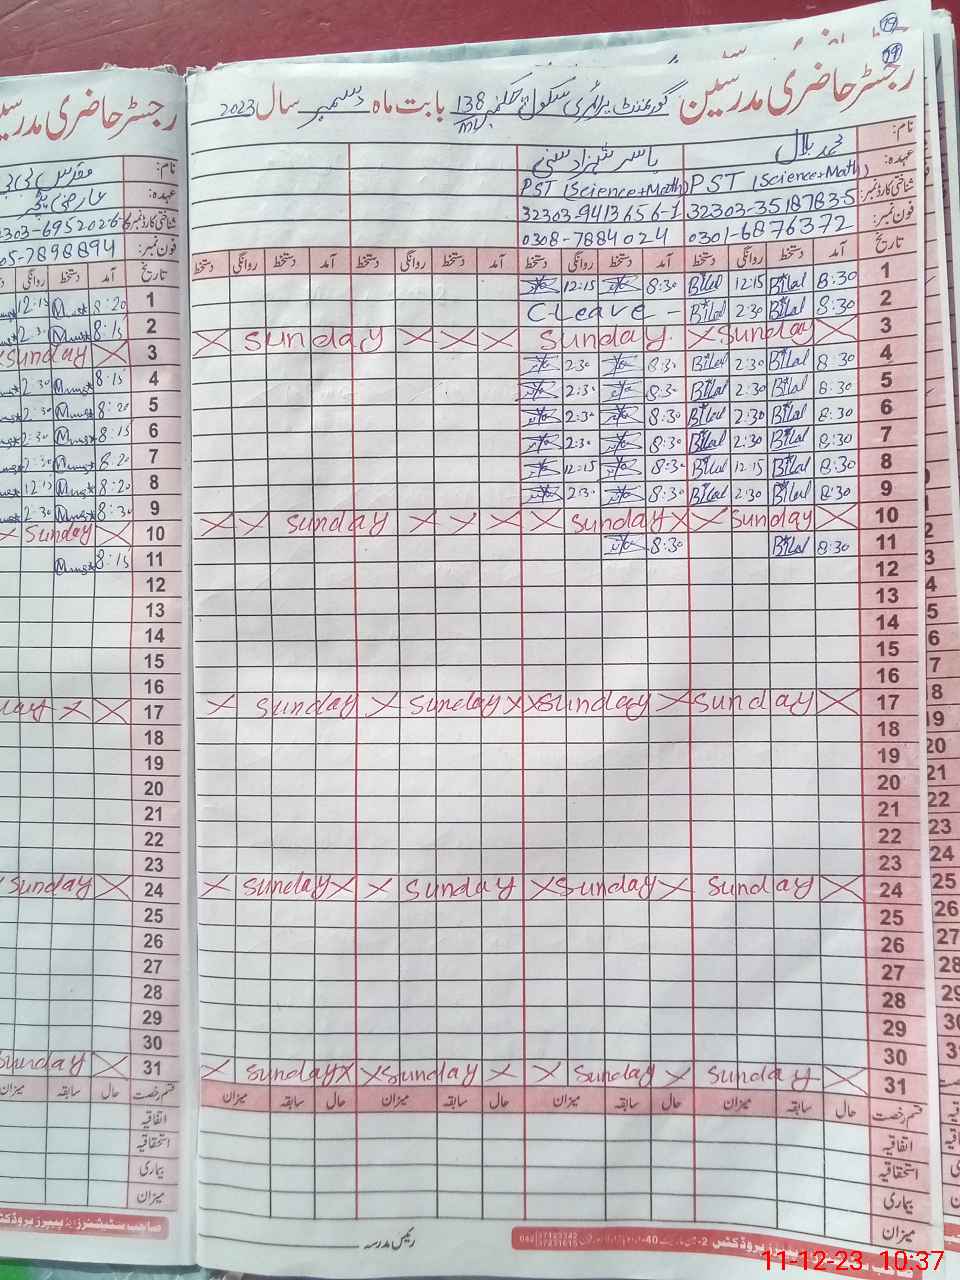 19
19
رجسٹر حاضری مدرسین گورنمنٹ پرائمری سکول 138 بابت ماہ دسمبر سال 2023
ML
نام: محمد بلال
عہدہ: PST (Science+Math) PST (Science+Math)
شناختی کارڈ نمبر: 32303-3518783-5 32303-9413656-1
فون نمبر: 0301-6876372 0308-7884024
تاریخ آمد دستخط روانگی دستخط آمد دستخط روانگی دستخط آمد دستخط روانگی دستخط آمد دستخط روانگی دستخط
1 8:30 Bilal 12:15 Bilal 8:30 12:15
2 8:30 Bilal 2:30 Bilal - C Leave
3 Sunday Sunday Sunday
4 8:30 Bilal 2:30 Bilal 8:30 2:30
5 8:30 Bilal 2:30 Bilal 8:30 2:30
6 8:30 Bilal 2:30 Bilal 8:30 2:30
7 8:30 Bilal 2:30 Bilal 8:30 2:30
8 8:30 Bilal 12:15 Bilal 8:30 12:15
9 8:30 Bilal 2:30 Bilal 8:30 2:30
10 Sunday Sunday Sunday
11 8:30 Bilal 8:30
12
13
14
15
16
17 Sunday Sunday Sunday Sunday
18
19
20
21
22
23
24 Sunday Sunday Sunday Sunday
25
26
27
28
29
30
31 Sunday Sunday Sunday Sunday
قسم رخصت حال سابقہ میزان حال سابقہ میزان حال سابقہ میزان حال سابقہ میزان
اتفاقیہ
استحقاقیہ
بیماری
میزان
رئیس مدرسہ
رجسٹر حاضری مدرسین
نام:
عہدہ:
شناختی کارڈ نمبر: 2303-6952026-6
فون نمبر: 05-7898894
تاریخ آمد دستخط روانگی
1 8:20 12:15
2 8:15 2:30
3 Sunday
4 8:15 2:30
5 8:20 2:30
6 8:15 2:30
7 8:20 2:30
8 8:20 12:15
9 8:30 2:30
10 Sunday
11 8:15
12
13
14
15
16
17
18
19
20
21
22
23
24 Sunday
25
26
27
28
29
30
31 Sunday
قسم رخصت حال سابقہ میزان
اتفاقیہ
استحقاقیہ
بیماری
میزان
صاحب سٹیشنرز اینڈ پیپرز پروڈکٹس
11-12-23 10:37